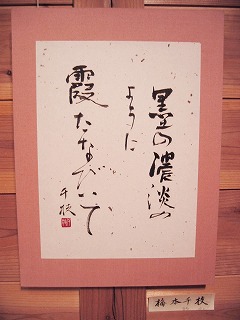 墨の濃淡の
ように
霞たなびいて
千枝
橋本千枝